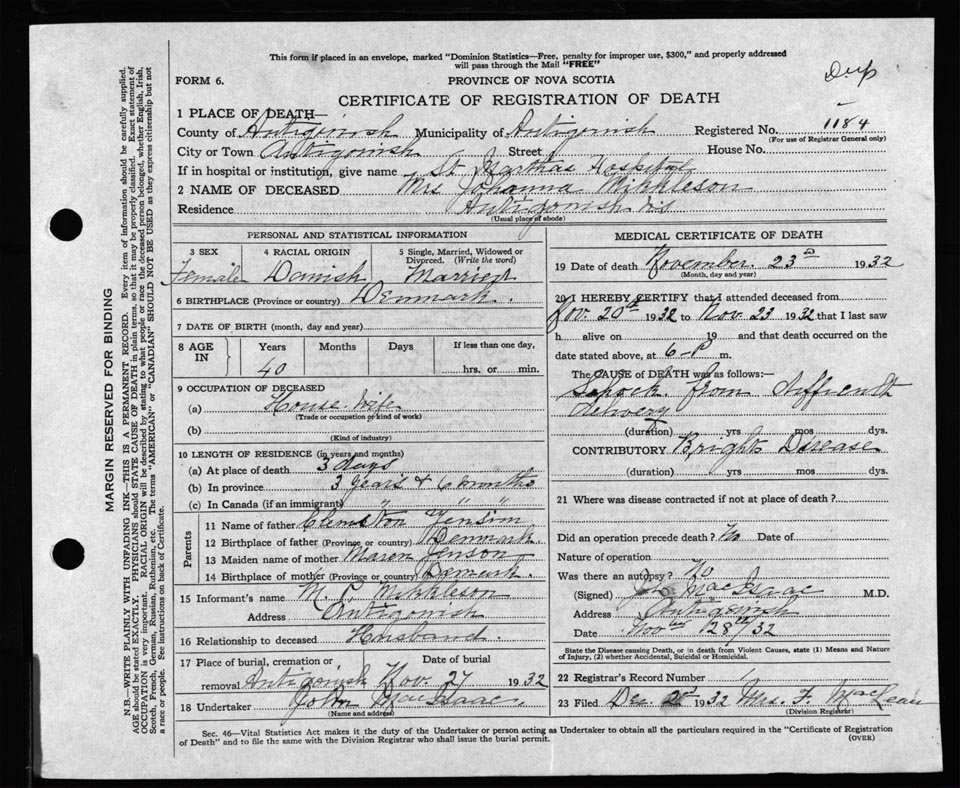 This form if placed in an envelope, marked "Dominion Statistics—Free, penalty for improper use, $300," and properly addressed
will pass through the Mail "FREE"
Dup
FORM 6.
PROVINCE OF NOVA SCOTIA
CERTIFICATE OF REGISTRATION OF DEATH
1 PLACE OF DEATH—
County of Antigonish Municipality of Antigonish Registered No. 1184
(For use of Registrar General only)
City or Town Antigonish Street House No.
If in hospital or institution, give name St Marthas Hospital
2 NAME OF DECEASED Mrs Johanna Mikkleson
Residence Antigonish
(Usual place of abode)
PERSONAL AND STATISTICAL INFORMATION
3 SEX 4 RACIAL ORIGIN 5 Single, Married, Widowed or
Divorced. (Write the word)
Female Danish Married
6 BIRTHPLACE (Province or country) Denmark.
7 DATE OF BIRTH (month, day and year)
8 AGE IN Years Months Days If less than one day,
40 hrs. or min.
9 OCCUPATION OF DECEASED
(a) House wife
(Trade or occupation or kind of work)
(b)
(Kind of industry)
10 LENGTH OF RESIDENCE (in years and months)
(a) At place of death 3 days
(b) In province 3 years & 6 months
(c) In Canada (if an immigrant) " " "
Parents
11 Name of father
12 Birthplace of father (Province or country) Denmark.
13 Maiden name of mother Maren Jenson
14 Birthplace of mother (Province or country) Demark.
15 Informant's name M. P. Mikkleson
Address Antigonish
16 Relationship to deceased Husband.
17 Place of burial, cremation or Date of burial
removal Antigonish Nov. 27 1932
18 Undertaker John MacIsaac.
(Name and address)
MEDICAL CERTIFICATE OF DEATH
19 Date of death November 23 1932
(Month, day and year)
20 I HEREBY CERTIFY that I attended deceased from
Nov 20th 1932 to Nov. 23 1932 that I last saw
h alive on 19 and that death occurred on
date stated above, at 6-P m.
The CAUSE of DEATH was as follows:—
Schock from
(duration) yrs mos. dys.
CONTRIBUTORY Brights Disease
(duration) yrs mos. dys.
21 Where was disease contracted if not at place of death?
Did an operation precede death? No Date of
Nature of operation
Was there an autopsy? No
(Signed) MacIsaac M.D.
Address Antigonish
Date Nov 28th/32
State the Disease causing Death, or in death from Violent Causes, state (1) Means and Nature
of Injury, (2) whether Accidental, Suicidal or Homicidal.
22 Registrar's Record Number
23 Filed Dec. 1932 Mrs. F. MacLean
(Division Registrar)
Sec. 46—Vital Statistics Act makes it the duty of the Undertaker or person acting as Undertaker to obtain all the particulars required in the "Certificate of Registration
of Death" and to file the same with the Division Registrar who shall issue the burial permit. (OVER)
MARGIN RESERVED FOR BINDING
N.B.—WRITE PLAINLY WITH UNFADING INK—THIS IS A PERMANENT RECORD. Every item of information should be carefully supplied.
AGE should be stated EXACTLY. PHYSICIANS should STATE CAUSE OF DEATH in plain terms, so that it may be properly classified. Exact statement of
OCCUPATION is very important. RACIAL ORIGIN will be described by stating to what people or race the deceased person belonged, whether English, Irish,
Scotch, French, German, Russian, Ruthenian, etc. The terms "AMERICAN" or "CANADIAN" SHOULD NOT BE USED as they express citizenship but not
a race or people. See instructions on back of Certificate.